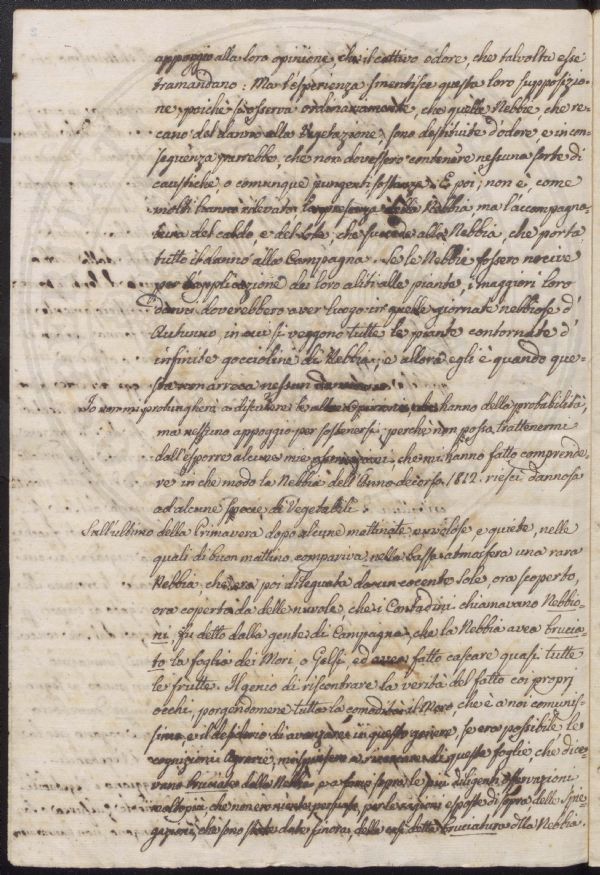 appoggio alla loro opinione, che il cattivo odore, che talvolta esse
tramandano: Ma l'esperienza smentisce questa loro supposizio-
ne poichè si osserva ordinariamente, che quelle Nebbie, che re-
cano del danno alla Vegetazione, sono destituite d'odore, e in con-
seguenza parrebbe, che non dovessero contenere nessuna sorte di
caustiche, o comunque pungenti sostanze. E poi, non è, come
molti hanno rilevato la presenza della Nebbia, ma l'accompagna-
tura del caldo, e del Sole, che succede alla Nebbia, che porta
tutto il danno alla Campagna. Se le Nebbie fossero nocive
per l'applicazione dei loro aliti alle piante, i maggiori loro
danni doverebbero aver luogo in quelle giornate nebbiose d'
Autunno, in cui si veggono tutte le piante contornate d'
infinite goccioline di Nebbia; e allora egli è quando que-
sta non arreca nessun danno
Io non mi prolungherò a discutere le altre Opinioni, che hanno della probabilità,
ma nessuno appoggio per sostenersi; perchè non posso trattenermi
dall'esporre alcune mie che mi hanno fatto comprende-
re in che modo la Nebbia dell'Anno decorso 1812. riescì dannosa
ad alcune specie di Vegetabili.
Sull'ultimo della Primavera dopo alcune mattinate nuvolose, e quiete, nelle
quali di buon mattino compariva nella bassa atmosfera una rara
Nebbia, che era poi dileguata da un cocente Sole, ora scoperto,
ora coperto da delle nuvole, che i Contadini chiamavano Nebbio-
ni fù detto dalla gente di Campagna, che la Nebbia avea brucia-
to la foglia dei Mori, o Gelsi, ed avea fatto cascare quasi tutte
le frutte. Il genio di riscontrare la verità del fatto coi proprj
occhi, porgendomene tutta la comodità il Moro, che è a noi comunis-
simo, e il desiderio di avanzare in questo genere, se era possibile le
cognizioni Agrarie, mi spinsero a ricercare di queste foglie che dice-
vano bruciate dalla Nebbia e a fare sopra le più diligenti Osservazioni
che non ero niente persuaso, per le ragioni esposte di sopra delle Spie-
gazioni, che sono state date finora, della così detta bruciatura dalla Nebbia.